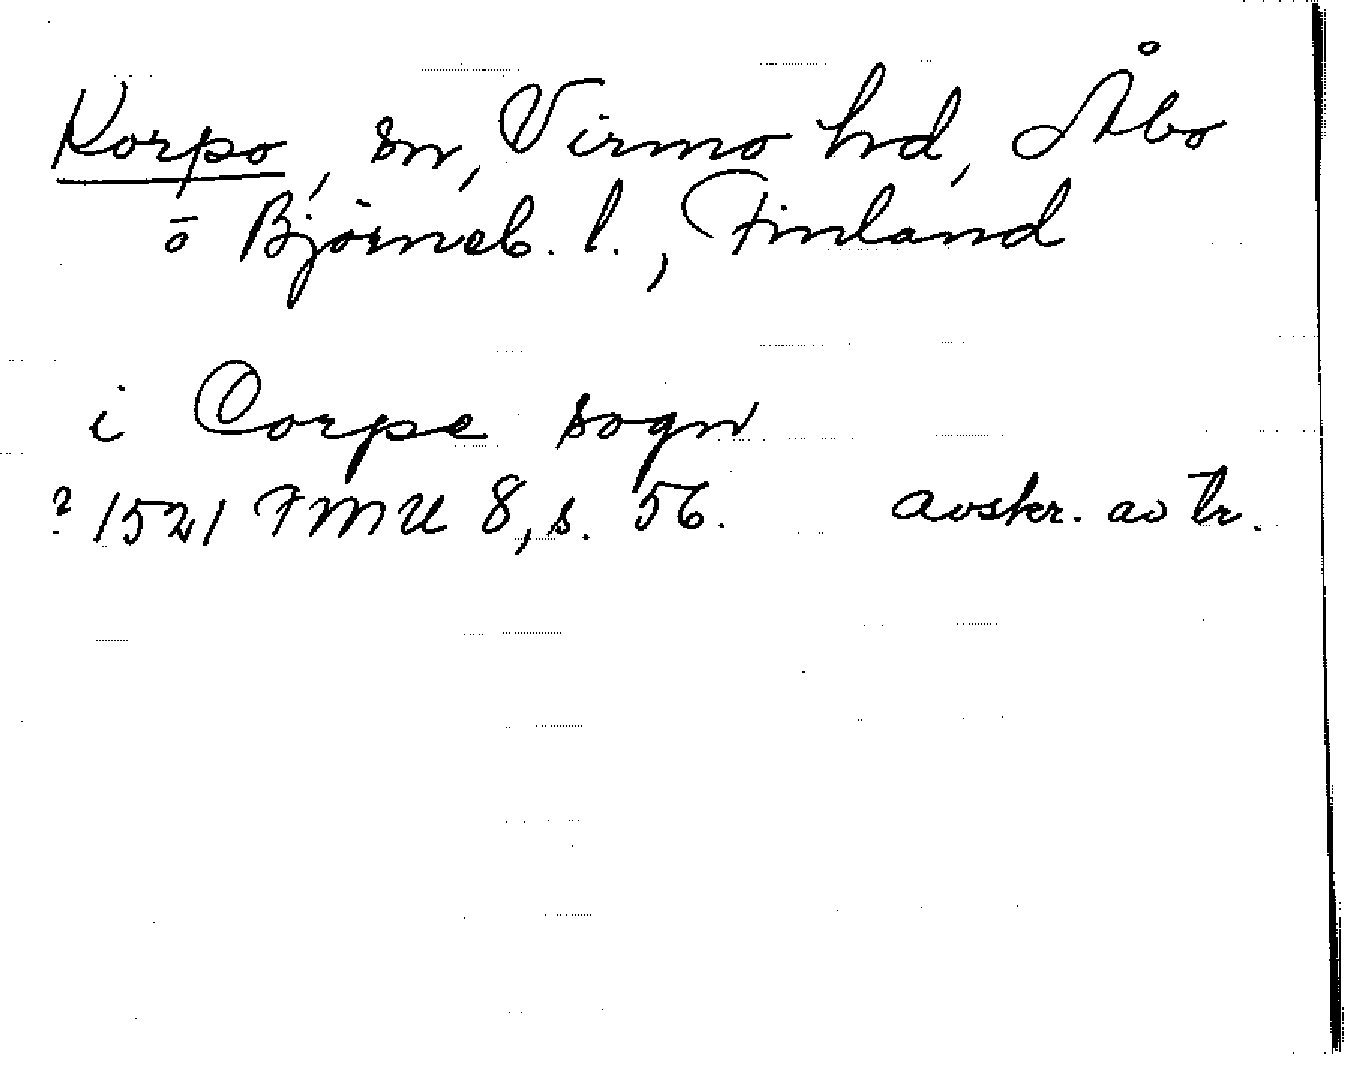 Korpo, sn, Virmo hd, Åbo
o Björneb. l., Finland
i Corpe sogn
? 1521 FMU 8, s. 56. avskr. av tr.